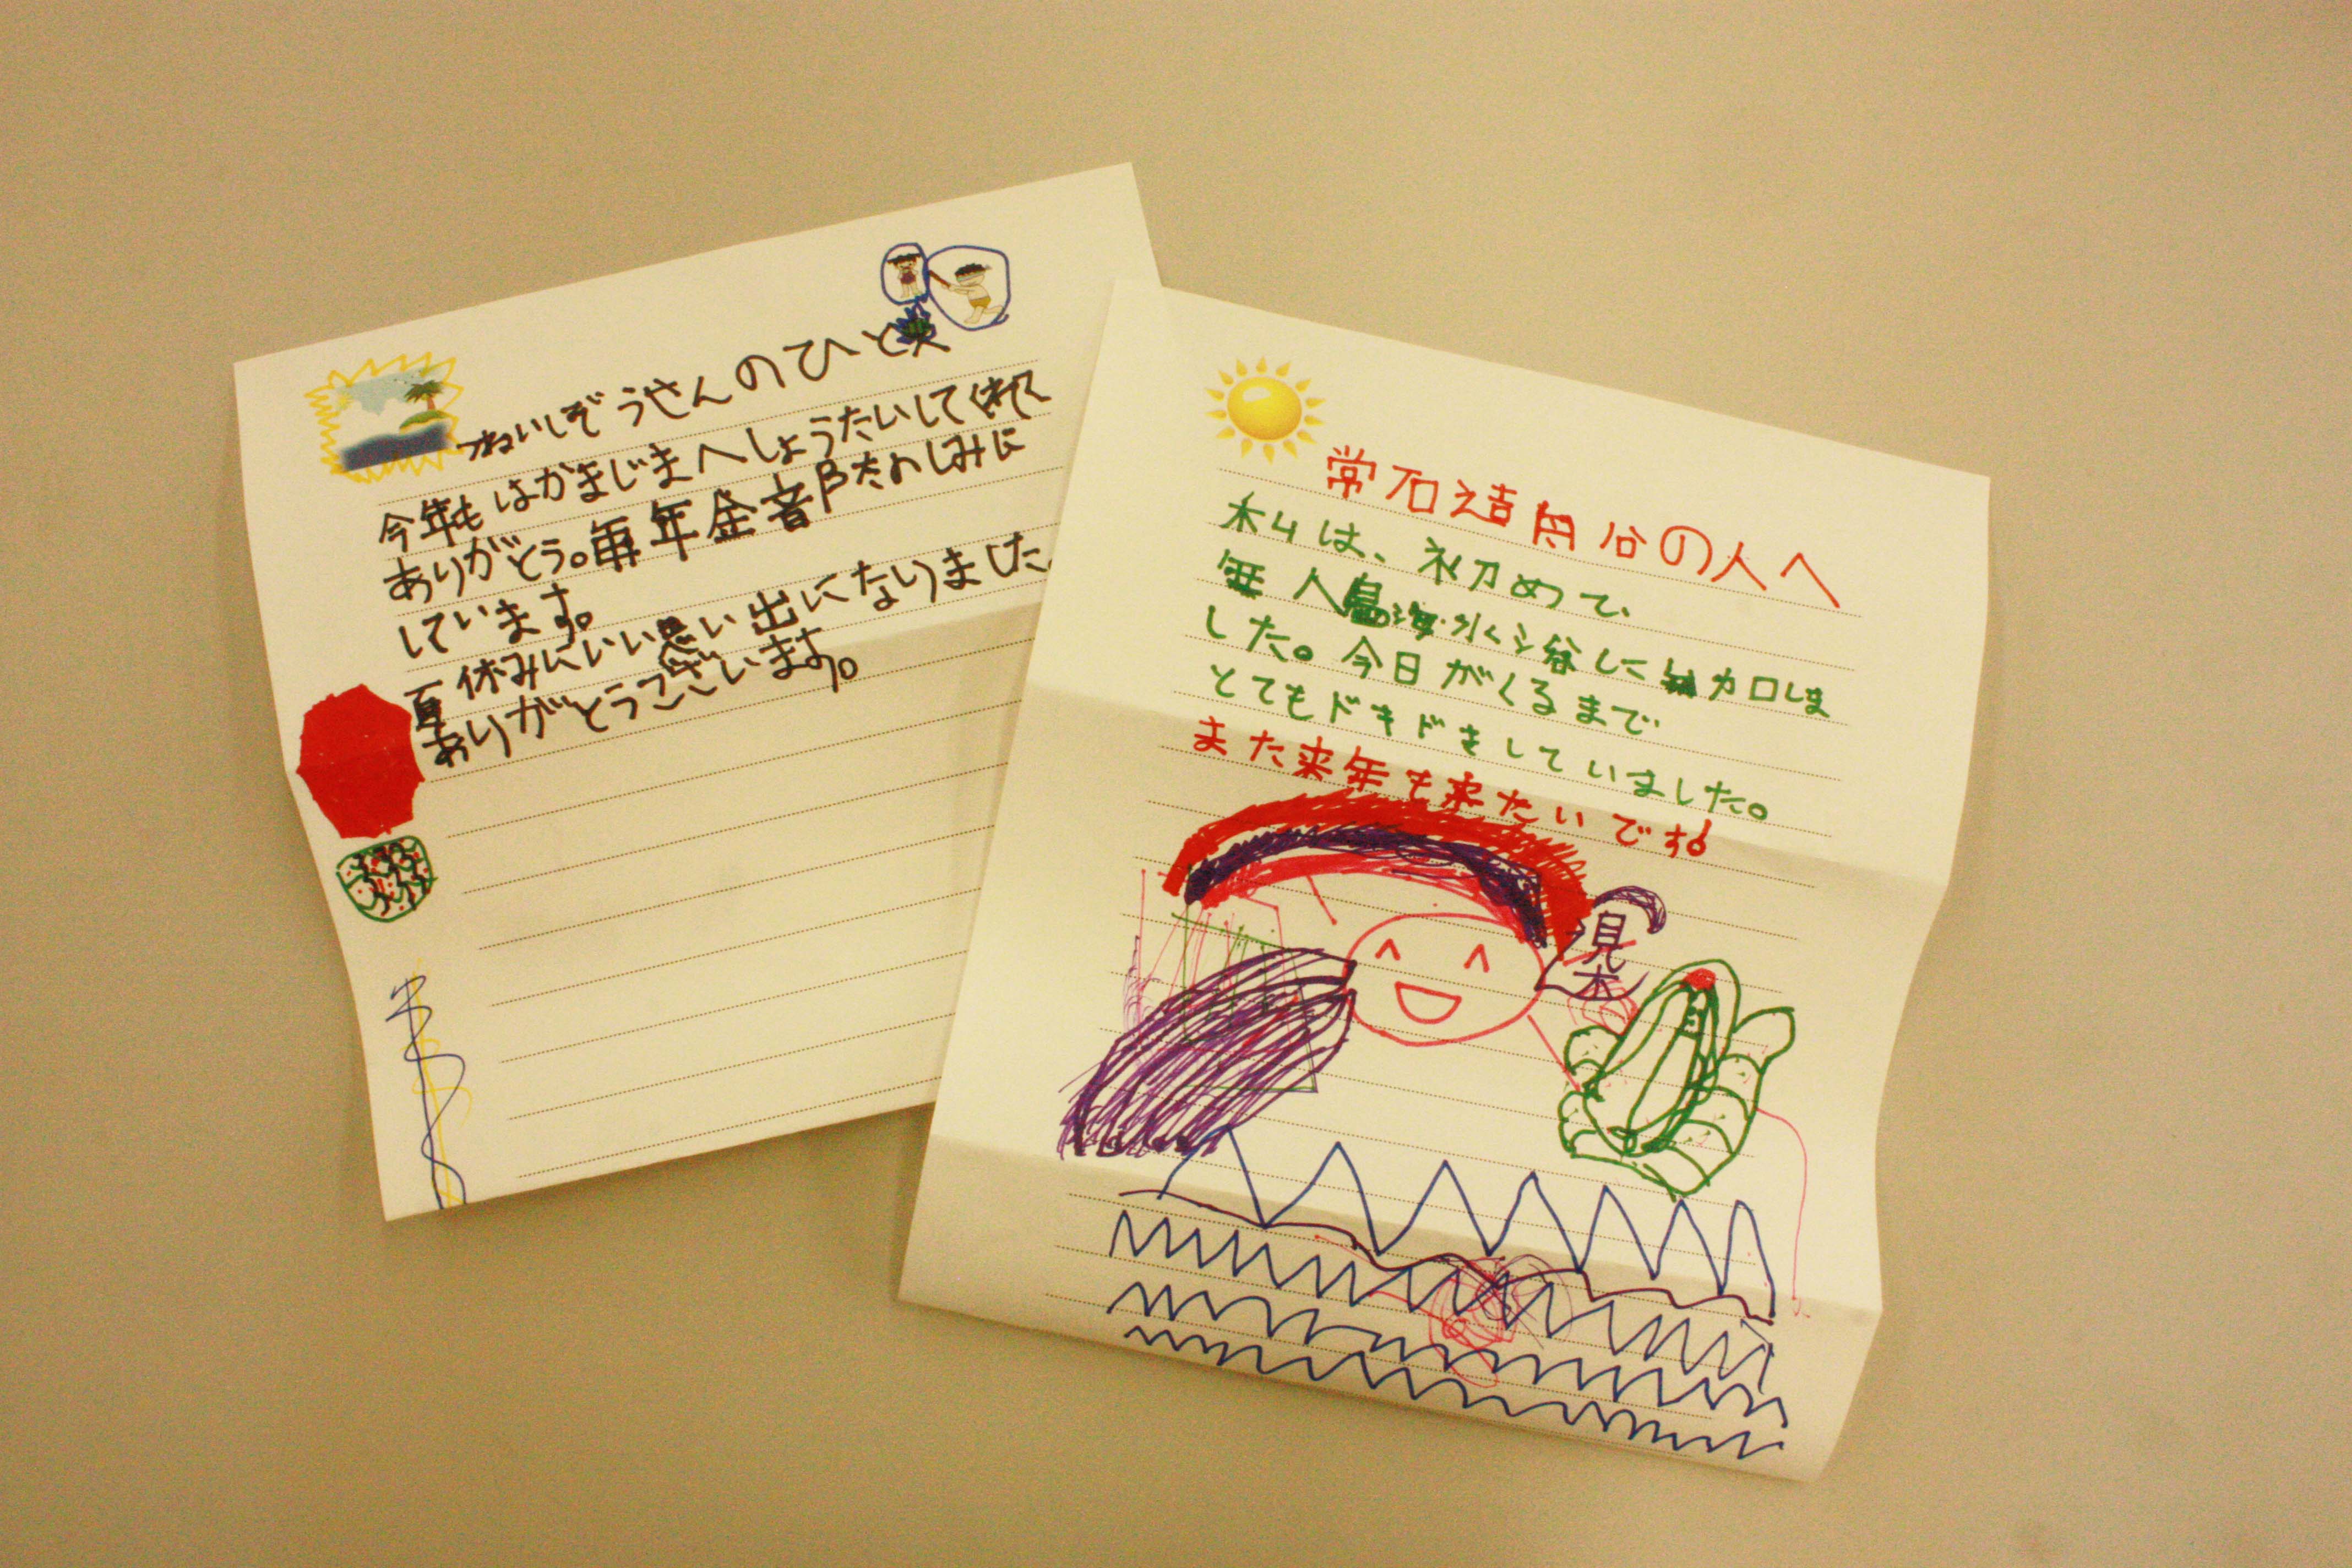 つねいしぞうせんのひと
今年もはかまじまへしょうたいしてくれて
ありがとう。毎年全部たのしみに
しています。
夏休みにいい思い出になりました。
ありがとうございます。
常石造船の人へ
私は、初めて、
無人島海水浴に加しま
した。今日がくるまで
とてもドキドキしていました。
また来年も来たいです!
見本